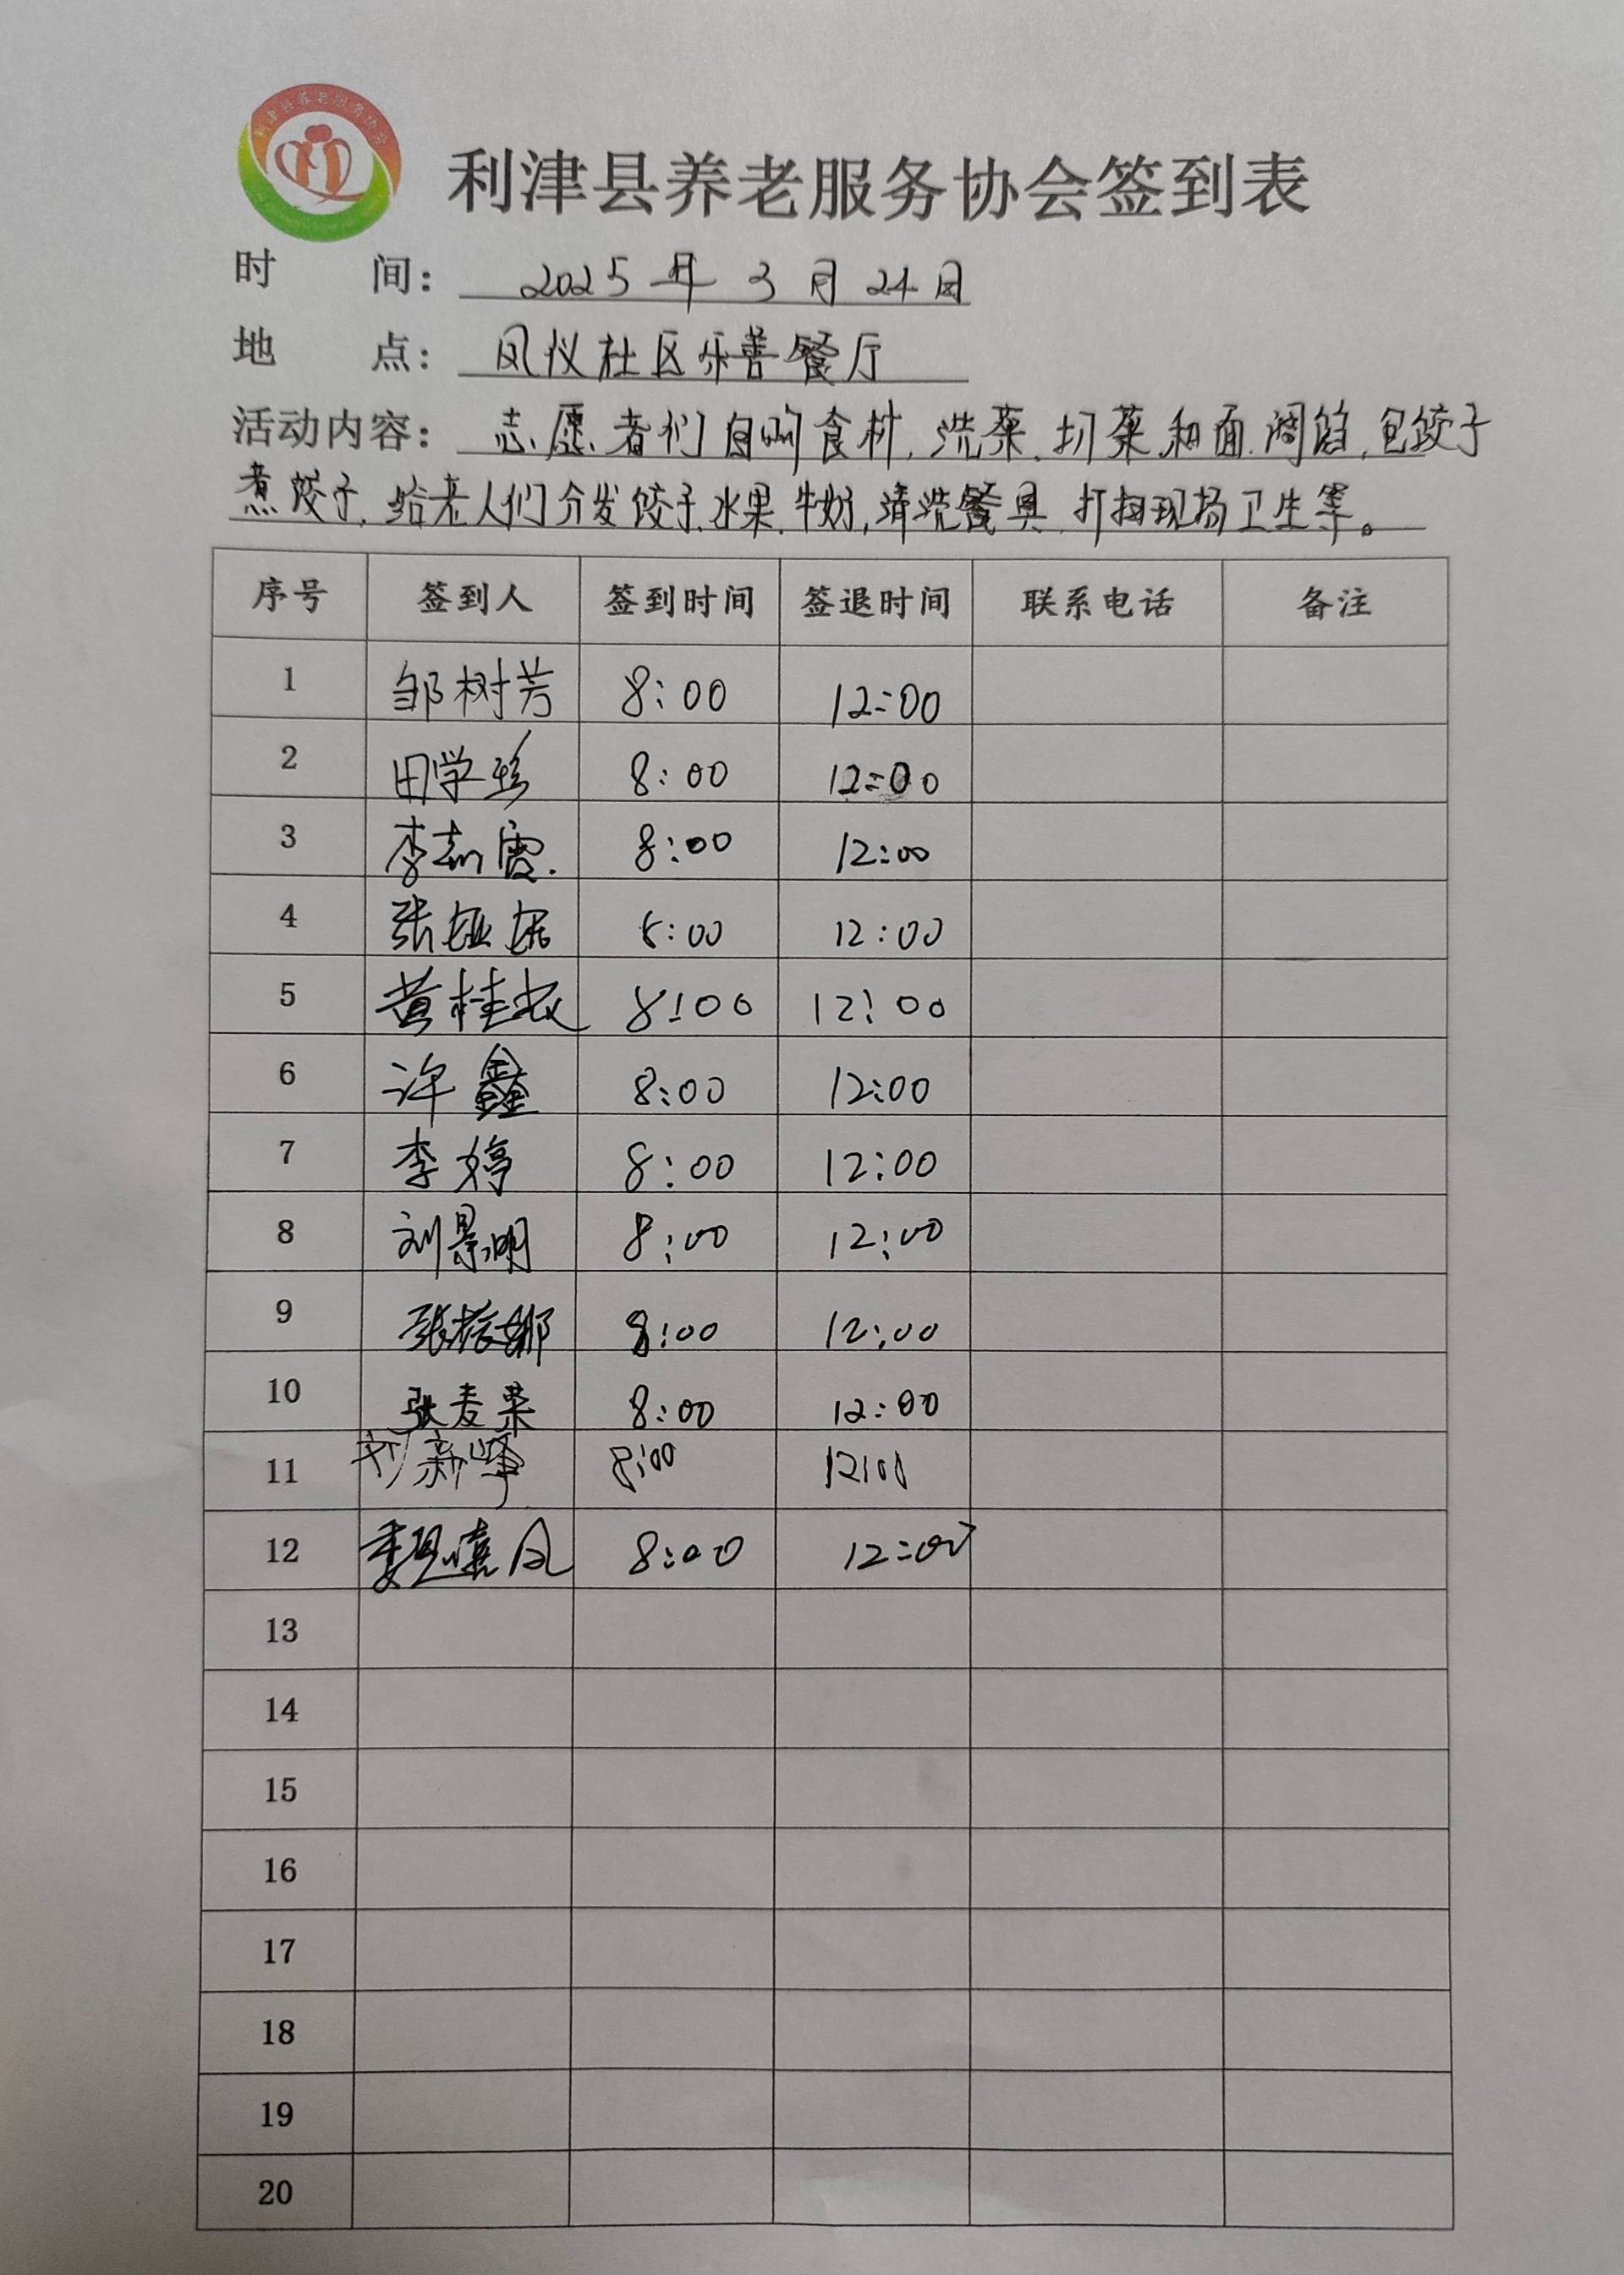 利津县养老服务协会
利津县养老服务协会签到表
时 间： 2025年3月24日
地 点： 凤仪社区乐善餐厅
活动内容： 志愿者们自购食材，洗菜、切菜、和面、调馅，包饺子
煮饺子，给老人们分发饺子、水果、牛奶，清洗餐具、打扫现场卫生等。
序号 签到人 签到时间 签退时间 联系电话 备注
1 邹树芳 8:00 12:00
2 田学珍 8:00 12:00
3 李 霞. 8:00 12:00
4 张 8:00 12:00
5 黄桂 8:00 12:00
6 许鑫 8:00 12:00
7 李婷 8:00 12:00
8 刘景明 8:00 12:00
9 张 娜 8:00 12:00
10 张麦荣 8:00 12:00
11 刘新峰 8:00 12:00
12 凤 8:00 12:00
13
14
15
16
17
18
19
20